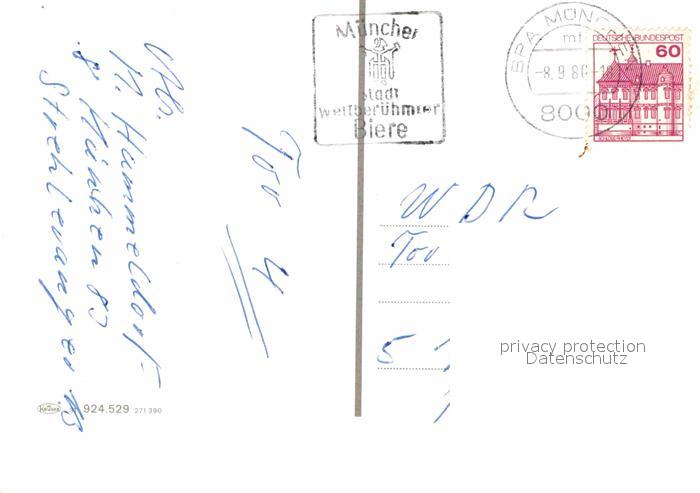 Abs.
N. Hammeldorf
8 München 83
Tor 4
München
Stadt
weltberühmter
Biere
BPA MÜNCHEN
mf
-8.9.80-1
8000
DEUTSCHE BUNDESPOST
60
WDR
Tor
5
privacy protection
Datenschutz
Krüger
924.529 271 390